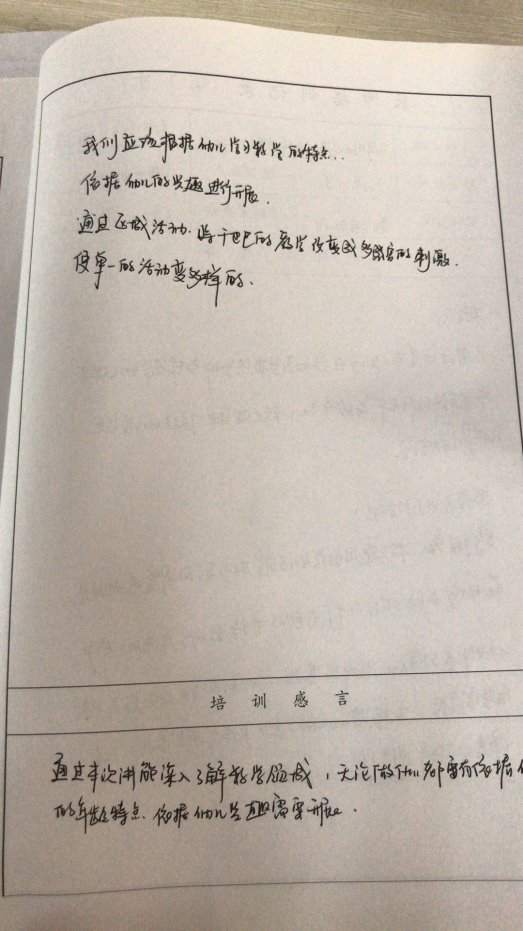 我们应该根据幼儿学习数学的特点..
依据幼儿的兴趣进行开展.
通过区域活动.将干巴巴的数学改变成多感官的刺激.
使单一的活动变多样的.
培训感言
通过本次讲 能深入了解数学领域,无论 幼儿都需有依据
的年龄特点.依据幼儿兴趣需要开展.